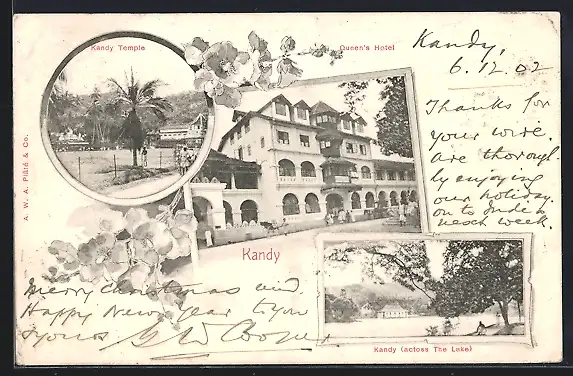 Kandy Temple
Queen's Hotel
Kandy,
6.12.02
Thanks for
your wire.
Are thorough-
ly enjoying
our holiday.
on to India
next week.
A. W. A. Plâté & Co.
Kandy
Merry Christmas and
Happy New Year to you
& yours G W Cooper
Kandy (across The Lake)